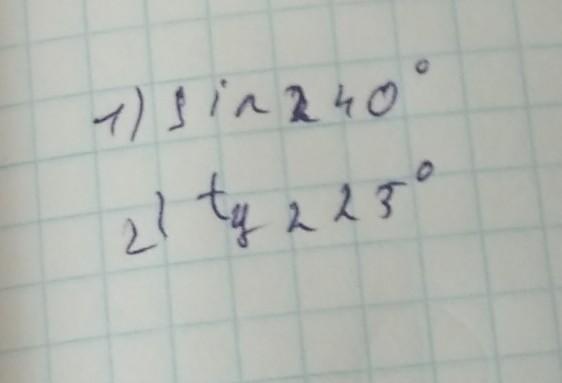 1) sin 240°
2) tg 225°